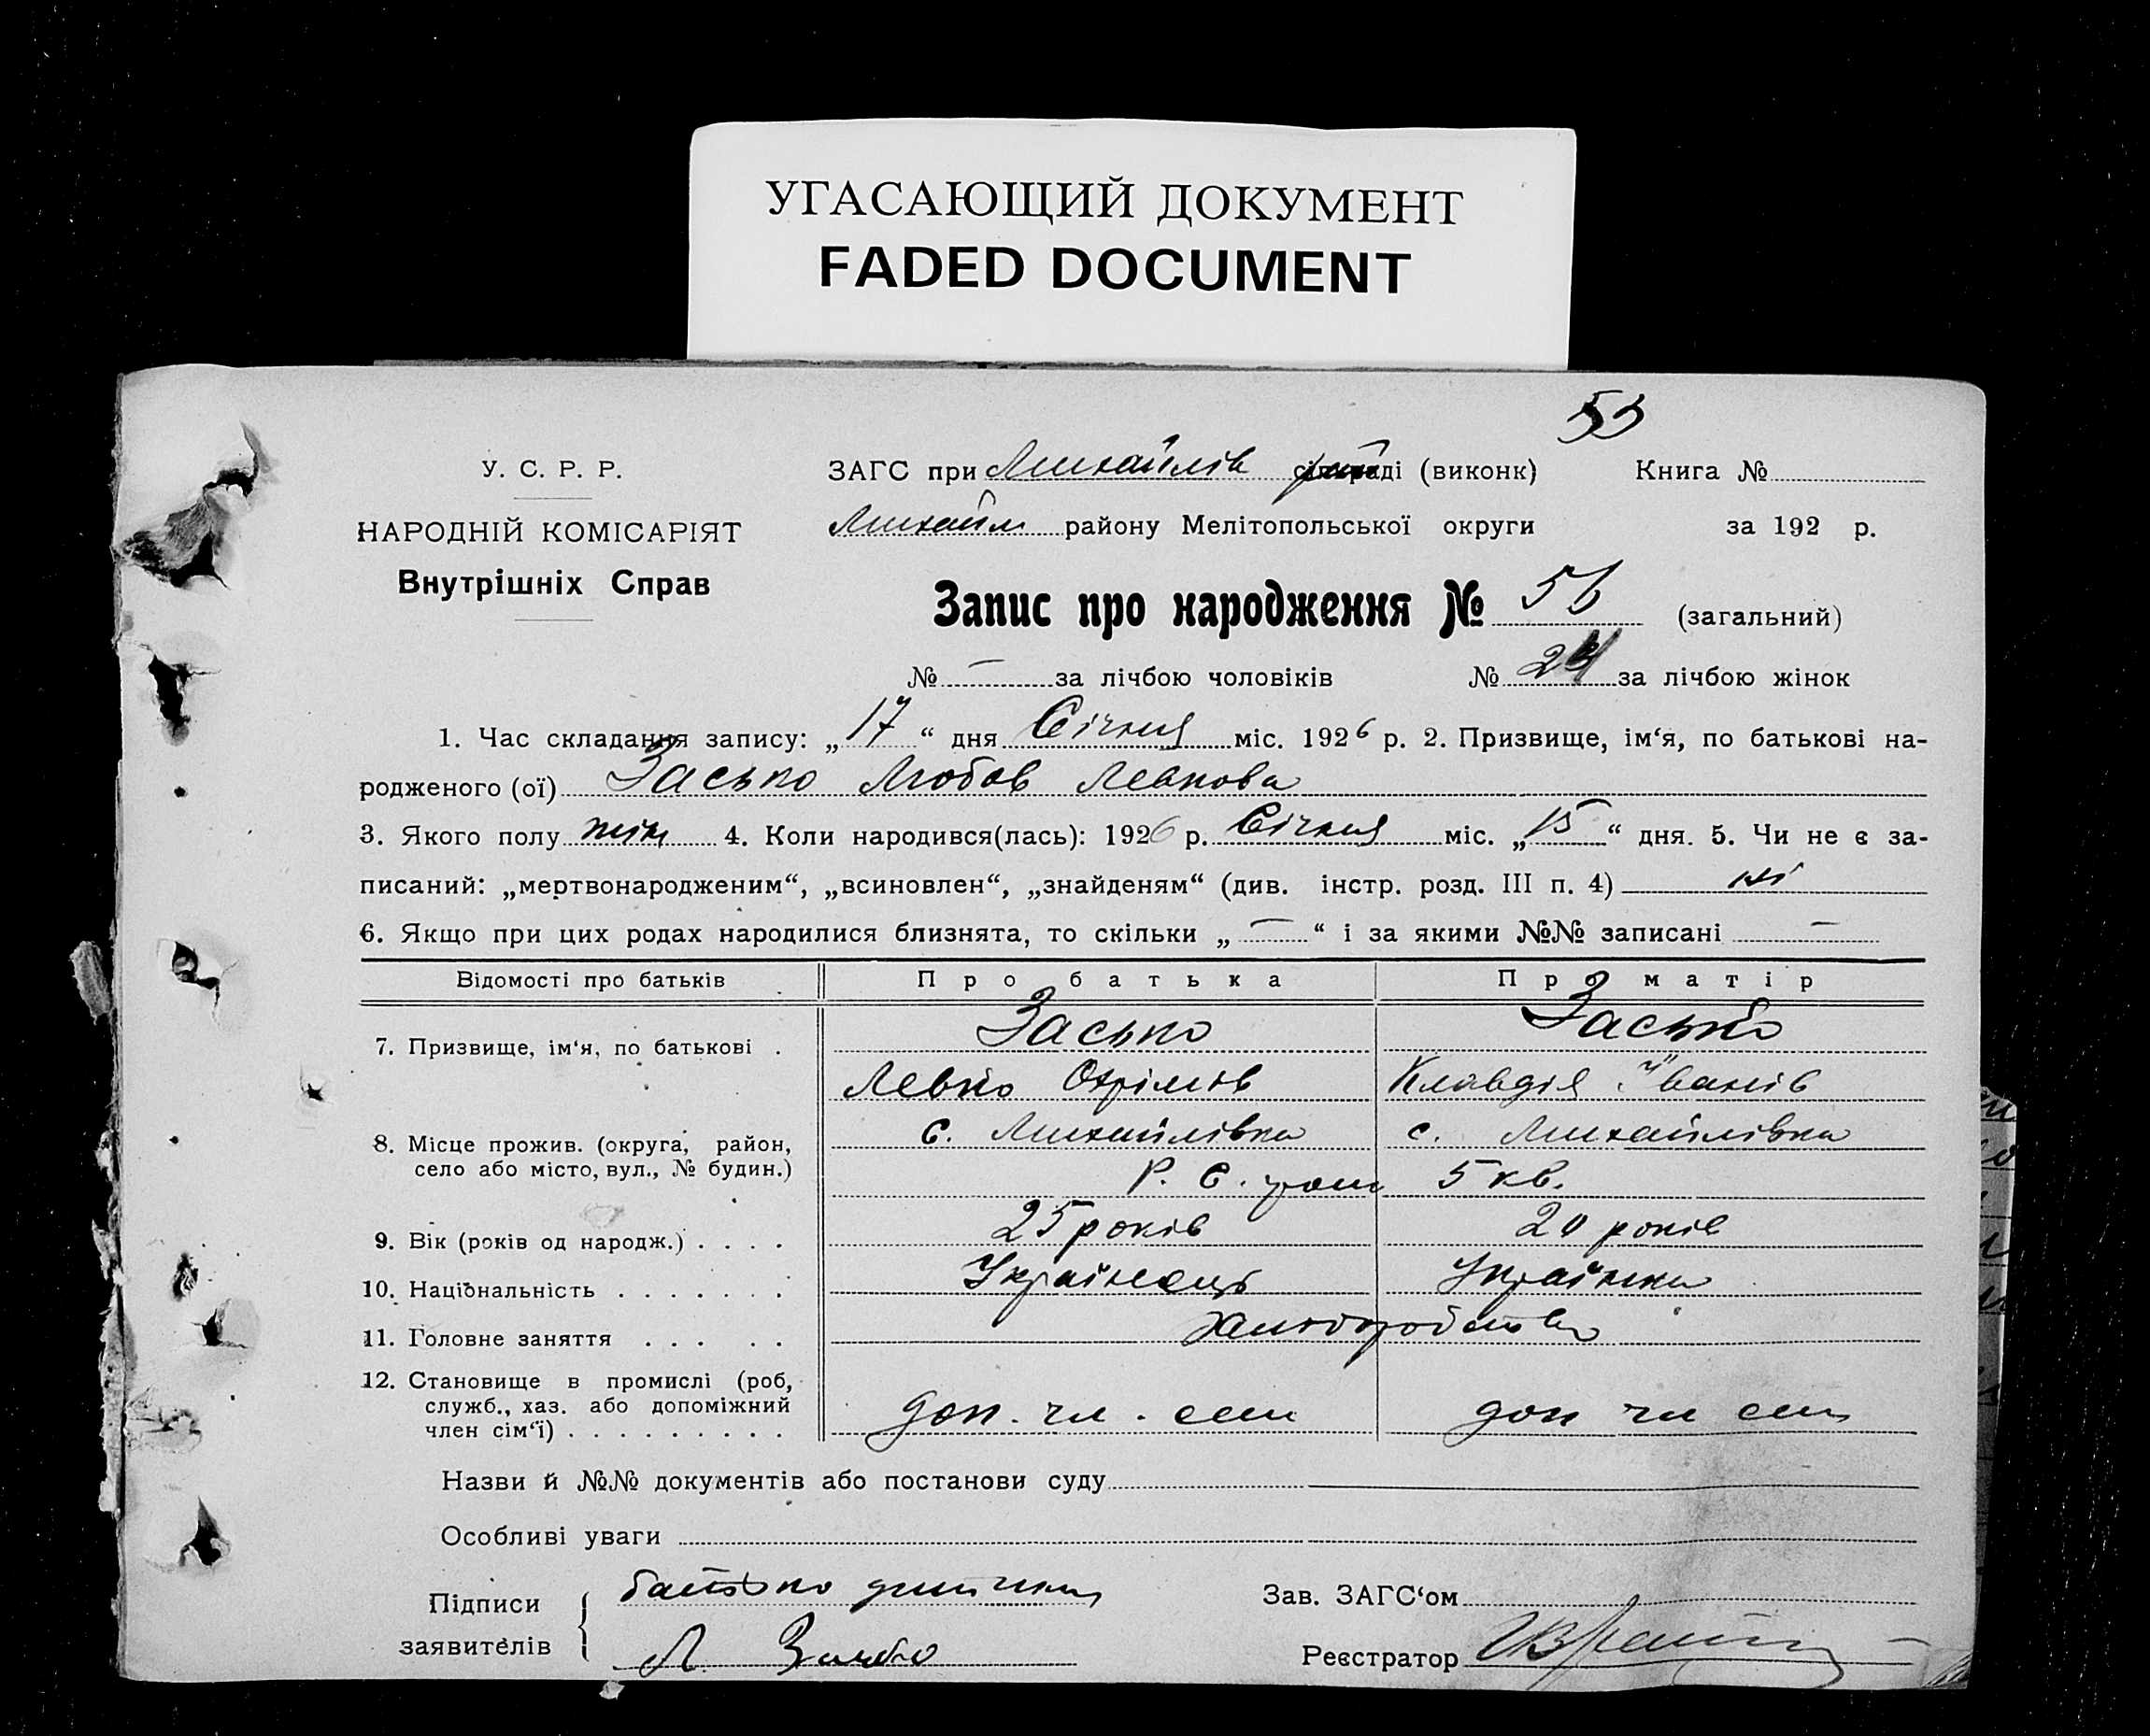 УГАСАЮЩИЙ ДОКУМЕНТ
FADED DOCUMENT
53
У. С. Р. Р.
ЗАГС при Михайлів раді (виконк) Книга №
НАРОДНІЙ КОМІСАРІЯТ
Михайл району Мелітопольської округи за 192 р.
Внутрішніх Справ
Запис про народження № 56 (загальний)
№ — за лічбою чоловіків № 24 за лічбою жінок
1. Час складання запису: „17“ дня Січня міс. 1926 р. 2. Призвище, ім‘я, по батькові на-
родженого (ої) Засько Любов Левкова
3. Якого полу жін 4. Коли народився(лась): 1926 р. Січня міс. „15“ дня. 5. Чи не є за-
писаний: „мертвонародженим“, „всиновлен“, „знайденям“ (див. інстр. розд. III п. 4) ні
6. Якщо при цих родах народилися близнята, то скільки „—“ і за якими №№ записані —
Відомості про батьків Про батька Про матір
7. Призвище, ім‘я, по батькові . Засько Засько
Левко Охрімів Клавдія Іванів
8. Місце прожив. (округа, район, с. Михайлівка с. Михайлівка
село або місто, вул., № будин.) Р. С. 5 кв.
9. Вік (років од народж.) . . . . 25 років 20 років
10. Національність . . . . . . . Українець Українка
11. Головне заняття . . . . . Хліборобство
12. Становище в промислі (роб,
служб., хаз. або допоміжний доп. чл. сем доп чл сем
член сім‘ї) . . . . . . . . .
Назви й №№ документів або постанови суду
Особливі уваги
Підписи батько дитини Зав. ЗАГС‘ом
заявителів Л Засько Реєстратор